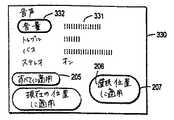 音声
332
331
音量
トレブル
バス
ステレオ オン
330
205
すべてに適用
206
選択位置
に適用
現在の位置
に適用
207